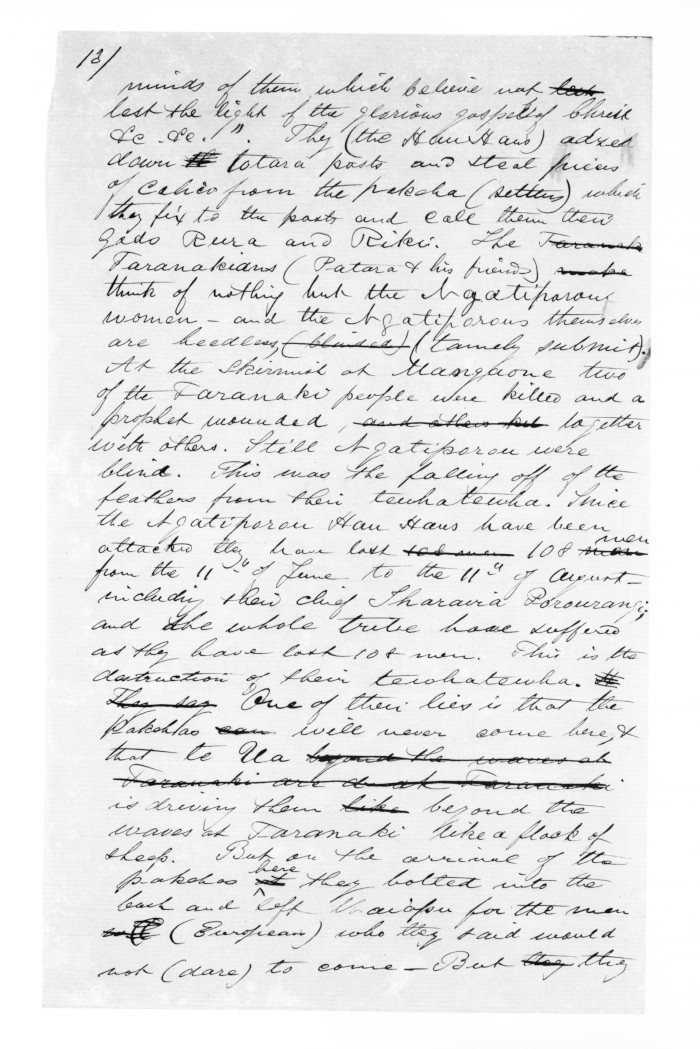 13/
minds of them which believe not lest
lest the light of the glorious gospel of Christ
&c &c.". They (the Hau Haus) adzed
down the totara posts and steal pieces
of calico from the pakeha (settlers) which
they fix to the posts and call them their
gods Rura and Riki. The Taranak
Taranakians (Patara & his friends) make
think of nothing but the Ngatiporou
women - and the Ngatiporous themselves
are heedless, (blinded) (tamely submit).
At the skirmish at Mangaone two
of the Taranaki people were killed and a
prophet wounded, and others kil together
with others. Still Ngatiporou were
blind. This was the falling off of the
feathers from their tewhatewha. Since
the Ngatiporou Hau Haus have been
attacked they have lost 108 men 108 men men
from the 11th of June to the 11th of August -
including their chief Iharaira Porourangi;
and the whole tribe have suffered
as they have lost 108 men. This is the
destruction of their tewhatewha. Th
They say One of their lies is that the
Pakehas can will never come here, &
that te Ua beyond the waves at
Taranaki are d at Taranaki
is driving them like beyond the
waves at Taranaki like a flock of
sheep. But on the arrival of the
pakehas here they bolted into the
back and left Waiapu for the men
(European) who they said would
not (dare) to come - But they they